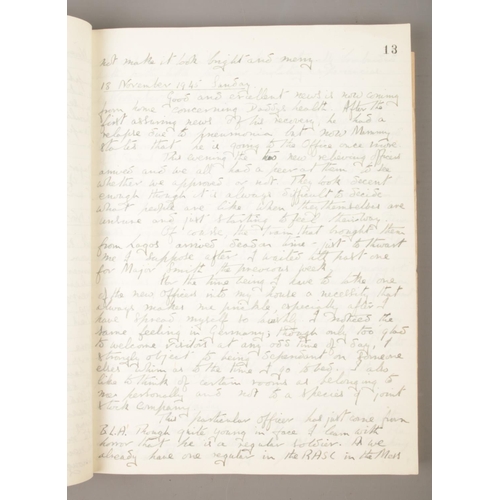 13
not make it look bright and merry.
18 November 1945 Sunday
Good and excellent news is now coming
from home concerning Daddy's health. After the
first assuring news of his recovery, he had a
relapse due to pneumonia but now Mummy
states that he is going to the Office once more
This evening the new relieving officers
arrived and we all had a peer at them to see
whether we approved or not. They look decent
enough though it is always difficult to decide
what people are like when they themselves are
unsure and just starting to feel their way.
Of course, the train that brought them
from Lagos arrived dead on time - just to thwart
me I suppose after I waited till past one
for Major Smith the previous week.
For the time being I have to take one
of the new officers into my house a necessity that
always makes me prickle, especially after I
have spread myself so widely. I noticed the
same feeling in Germany; though only too glad
to welcome visitors at any odd time of day, I
strongly object to being dependent on someone
else's whim as to the time I go to bed. I also
like to think of certain rooms as belonging to
me personally and not to a species of joint
stock company.
This particular officer has just come from
B.L.A. Though quite young in face I learn with
horror that he is a regular soldier. As we
already have one regular in the RASC in the Mess